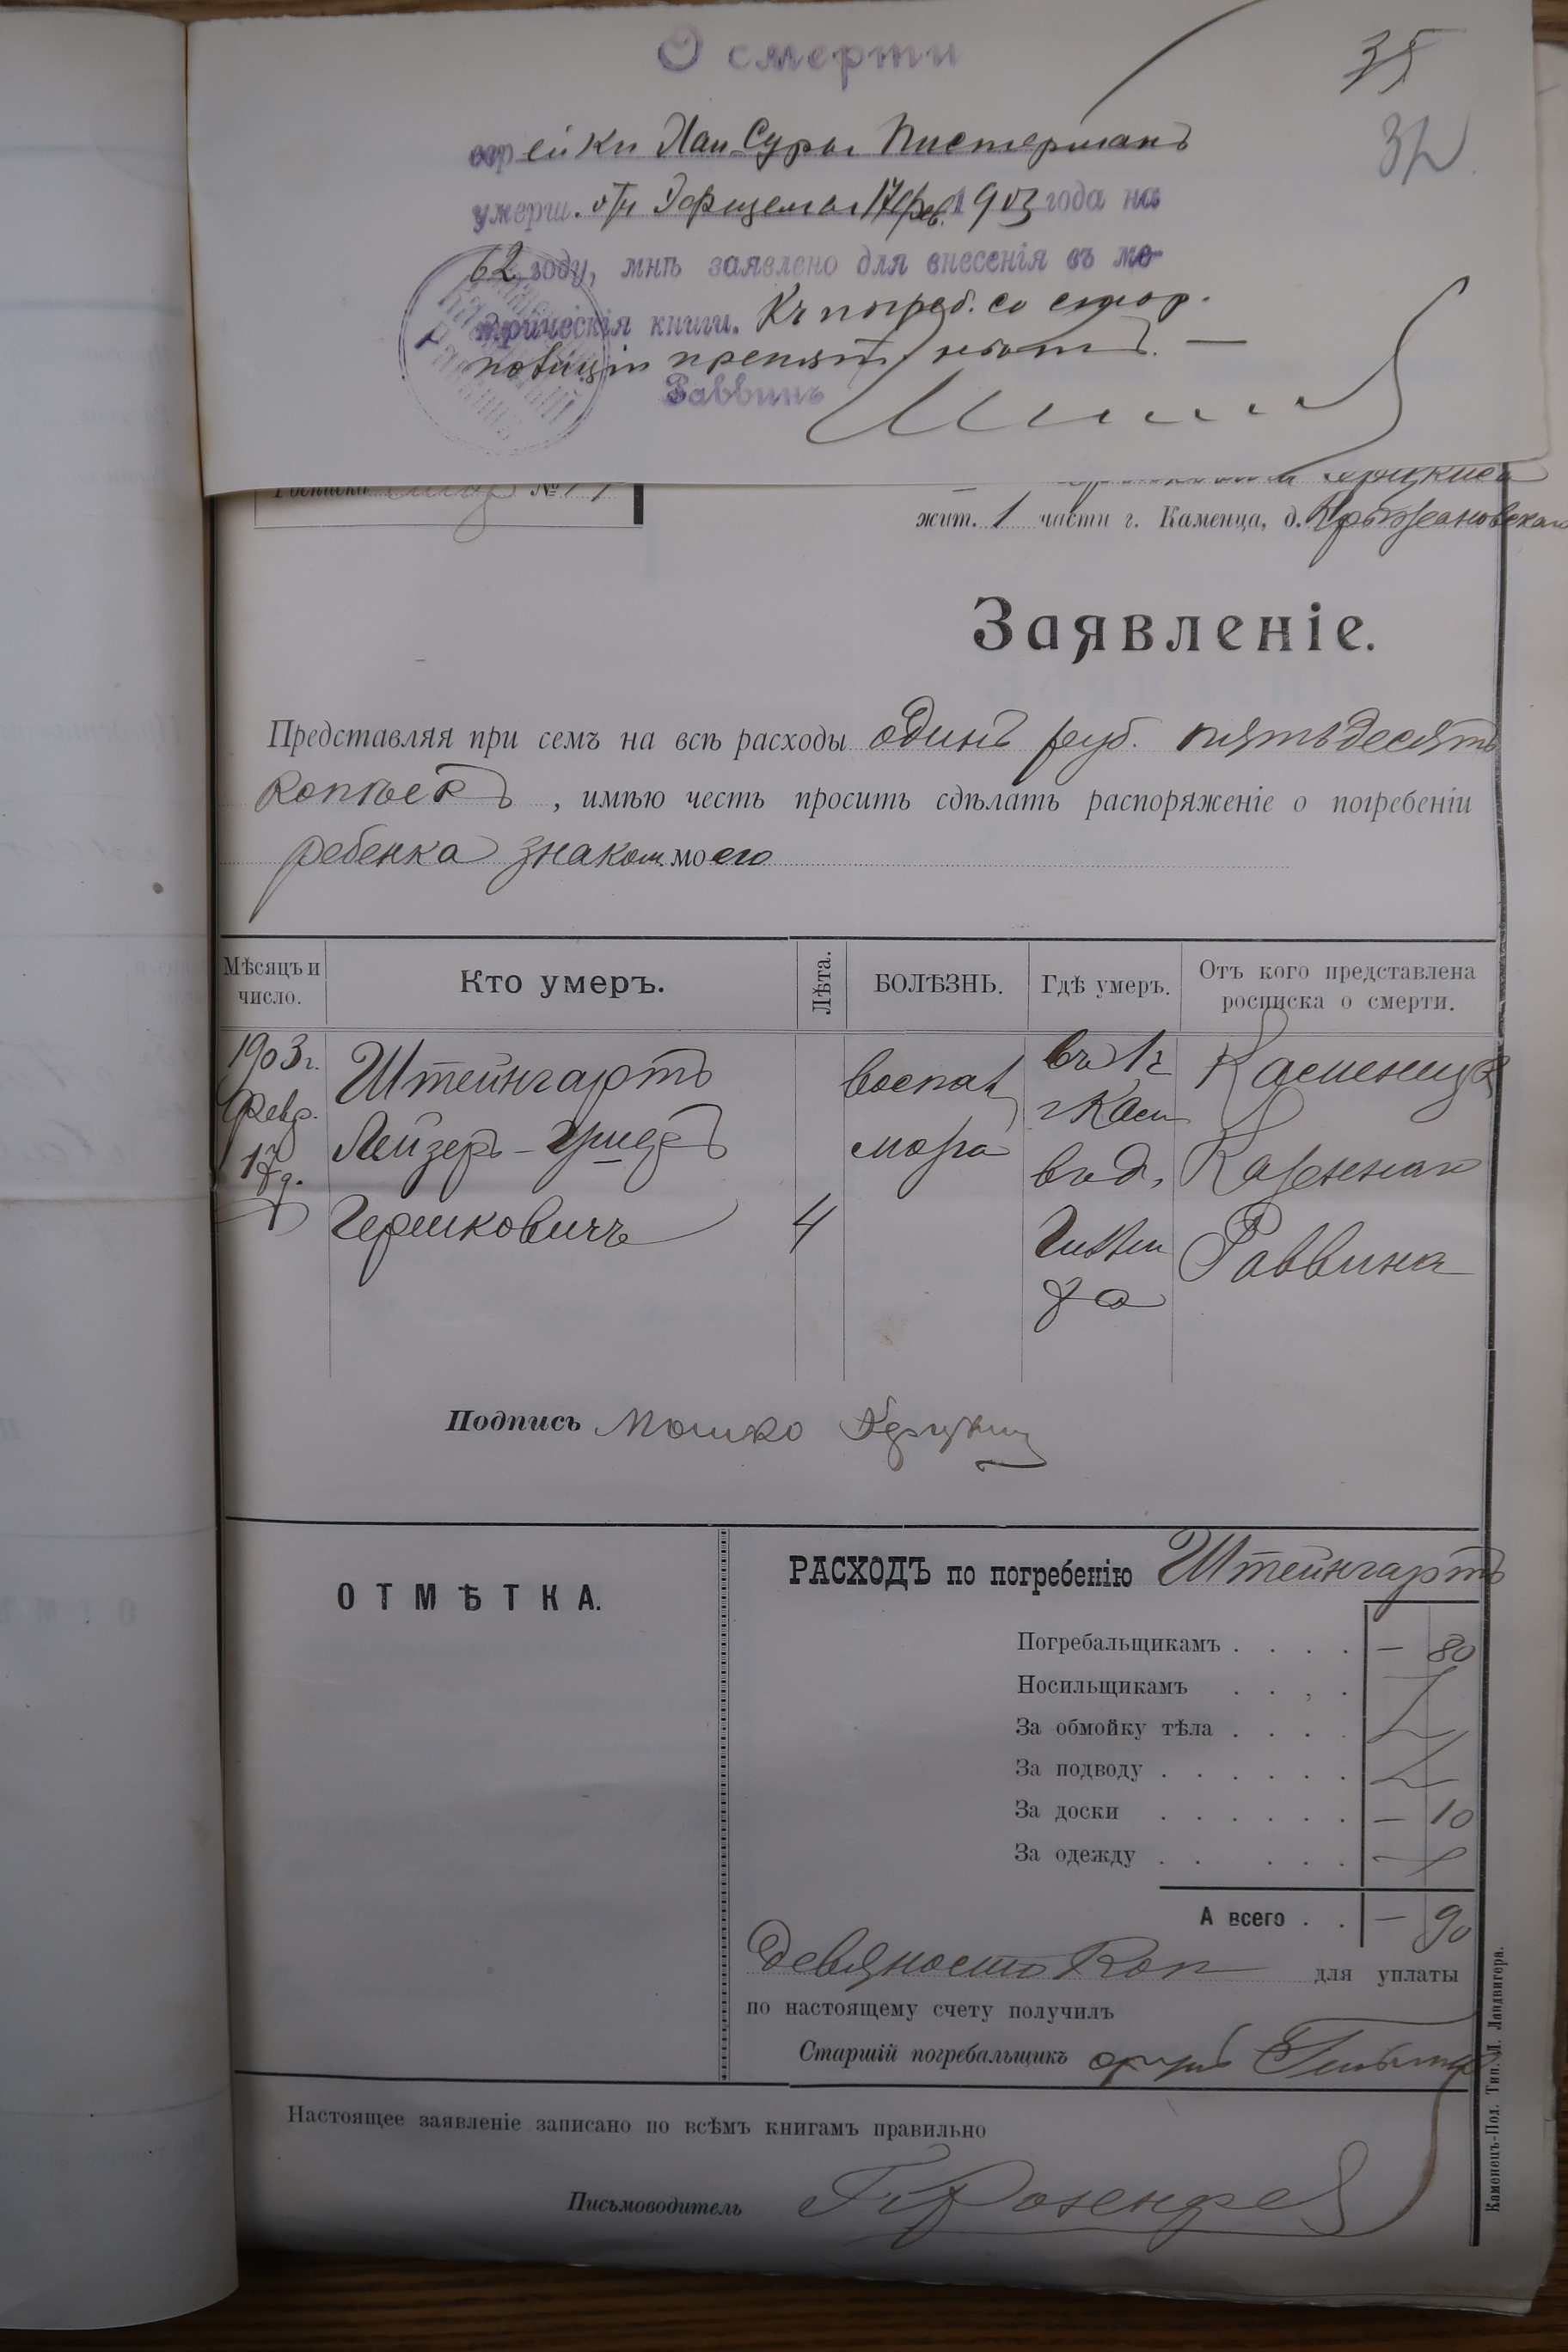 О смерти
35
32
еврейки Хаи Суры Пистерманъ
умерш. отъ Эмфиземы 17 фев. 1903 года на
62 году, мнѣ заявлено для внесенія въ ме-
трическія книги. Къ погреб. со стор.
полиціи препят. нѣтъ. —
Раввинъ
Росписка №
жит. 1 части г. Каменца, д. Крыжановскаго
Заявленіе.
Представляя при семъ на всѣ расходы одинъ руб. пятьдесятъ
копѣекъ, имѣю честь просить сдѣлать распоряженіе о погребеніи
ребенка знаком. моего
Мѣсяцъ и число. Кто умеръ. Лѣта. БОЛѢЗНЬ. Гдѣ умеръ. Отъ кого представлена росписка о смерти.
1903 г. Штейнгартъ воспал. въ 1 ч. Каменецк.
Февр. Лейзеръ- мозга г. Кам.
17 д. въ д. Казеннаго
Гершковичъ 4 Раввина
Подпись Мошко
ОТМѢТКА.
РАСХОДЪ по погребенію Штейнгартъ
Погребальщикамъ . . . . — 80
Носильщикамъ . . , .
За обмойку тѣла . . . .
За подводу . . . . . .
За доски . . . . . . — 10
За одежду . . . . .
А всего . . — 90
Девяносто коп для уплаты
по настоящему счету получилъ
Старшій погребальщикъ
Настоящее заявленіе записано по всѣмъ книгамъ правильно
Письмоводитель Розенфе
Каменецъ-Под. Тип. Д. Ландвигера.